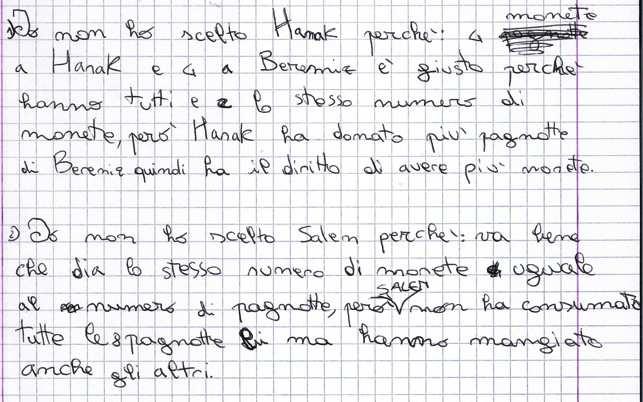 1) Io non ho scelto Hanak perché: 4 monete
a Hanak e 4 a Beremiz è giusto perché
hanno tutti e 2 lo stesso numero di
monete, però Hanak ha donato più pagnotte
di Beremiz quindi ha il diritto di avere più monete.
2) Io non ho scelto Salem perché: va bene
che dia lo stesso numero di monete uguale
al numero di pagnotte, però SALEM non ha consumato
tutte le 8 pagnotte lui ma hanno mangiato
anche gli altri.